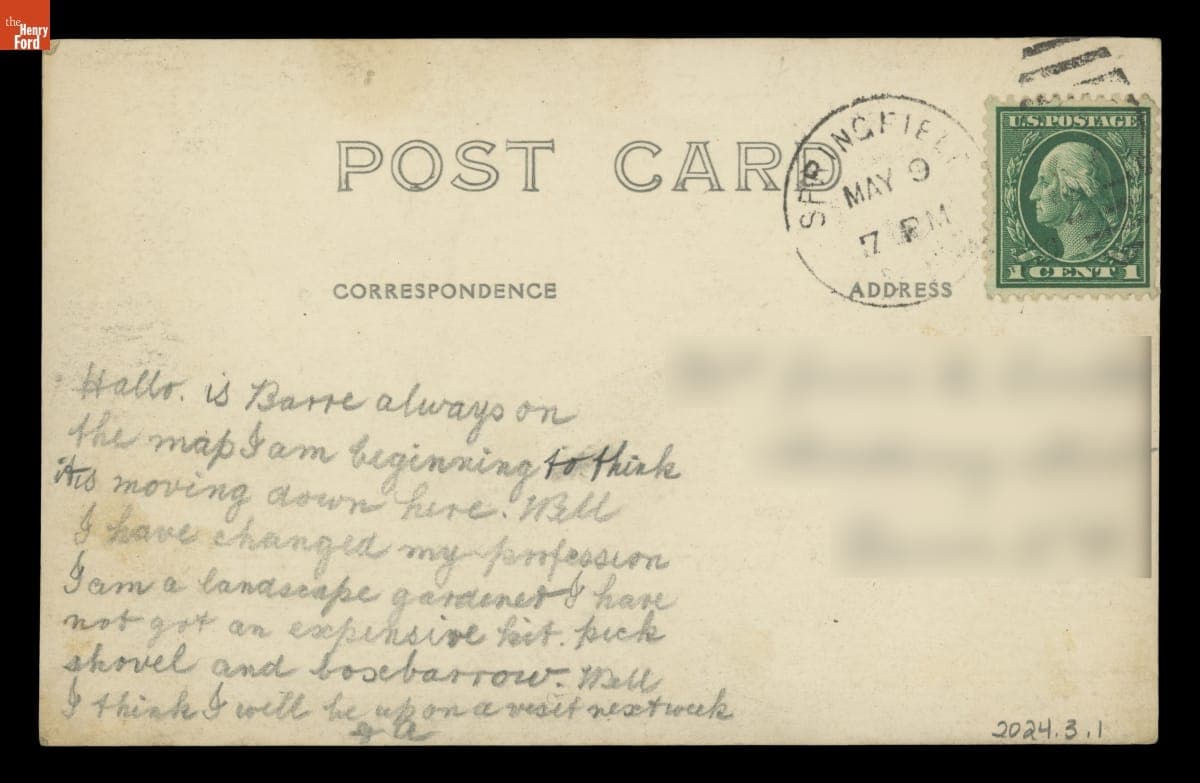 the
Henry
Ford
POST CARD
SPRINGFIEL
MAY 9
7 PM
U.S. POSTAGE
1 CENT 1
CORRESPONDENCE
ADDRESS
Hallo. is Barre always on
the map I am beginning to think
its moving down here. Well
I have changed my profession
I am a landscape gardener I have
not got an expensive kit. pick
shovel and boxbarrow. Well
I think I will be up on a visit next week
2024.3.1